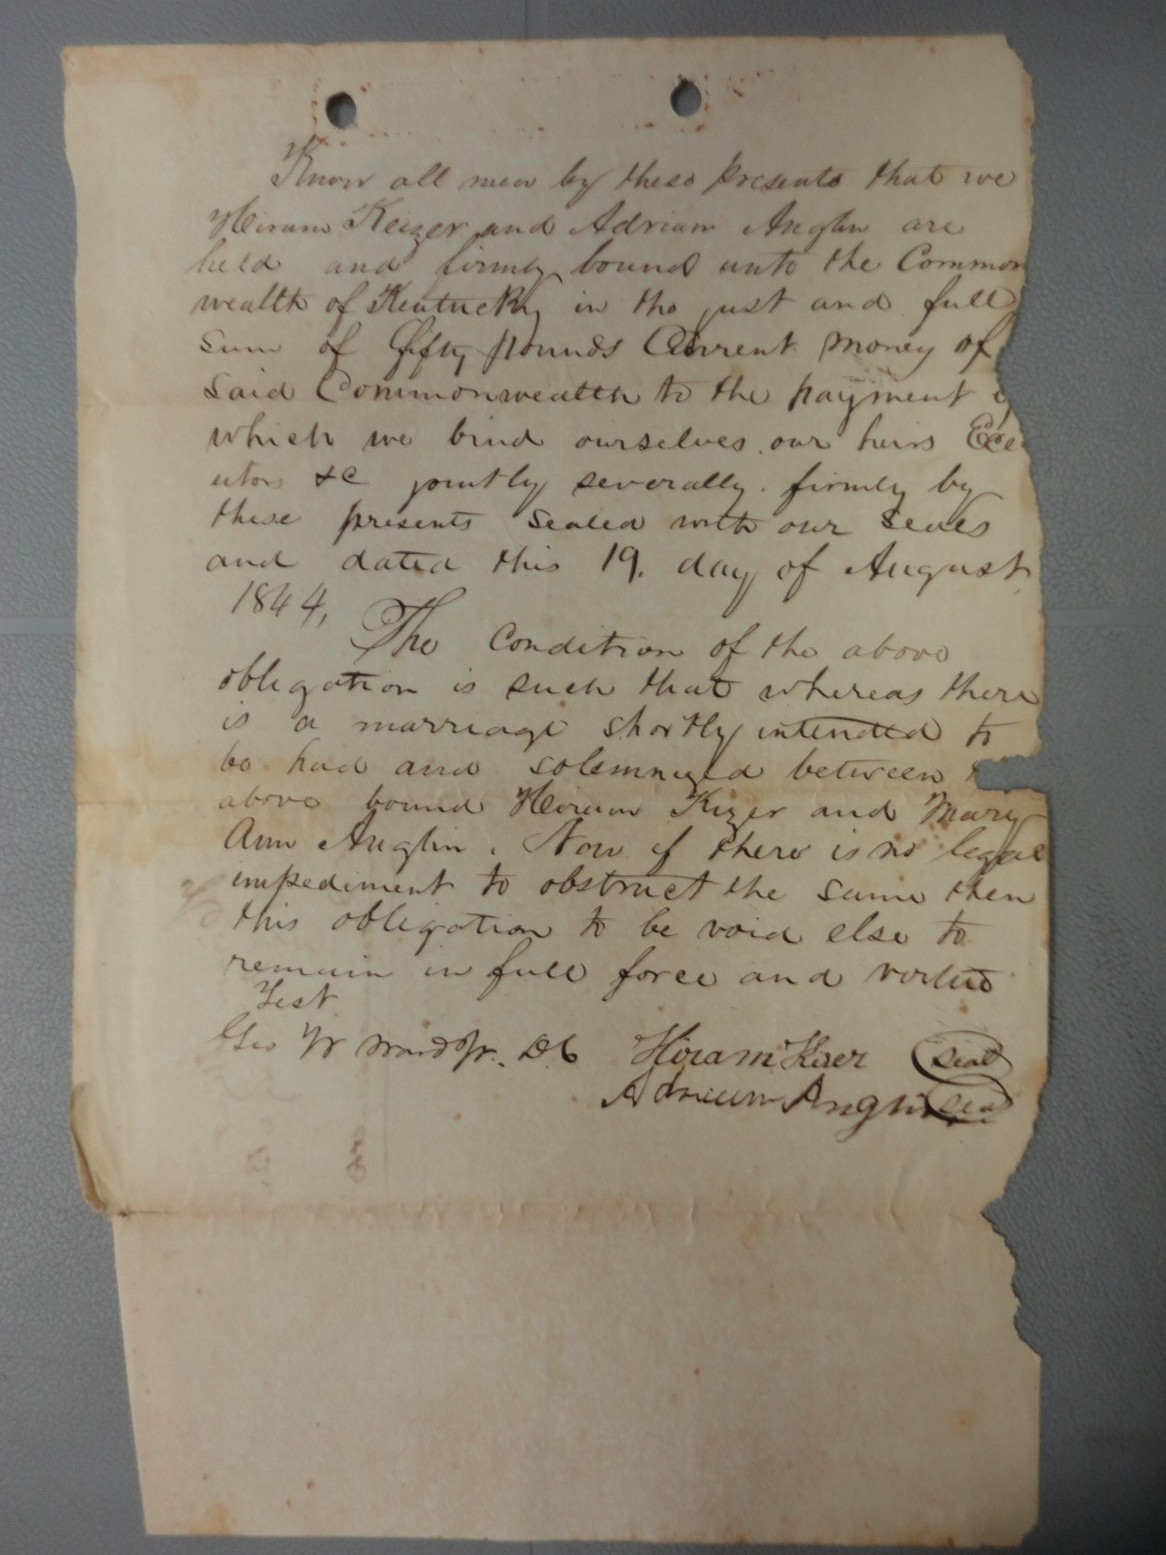 Know all men by these presents that we
Hiram Keizer and Adriam Anglin are
held and firmly bound unto the Common
wealth of Kentucky in the just and full
sum of fifty pounds Current money of
said Commonwealth to the payment
which we bind ourselves our heirs Exe
utors &c jointly severally. firmly by
these presents sealed with our seals
and dated this 19. day of August
1844,
The Condition of the above
obligation is such that whereas there
is a marriage shortly intended to
be had and solemnized between
above bound Hiram Kizer and Mary
Ann Anglin. Now if there is no legal
impediment to obstruct the same then
this obligation to be void else to
remain in full force and virtue
Test
Geo W Ward Jr. DC Hiram Kiser seal
Adrieum Anglin seal